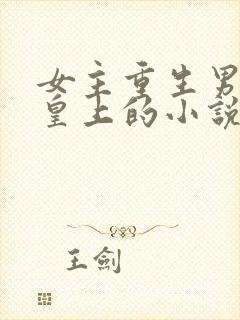 女主重生男
皇上的小説
王劍